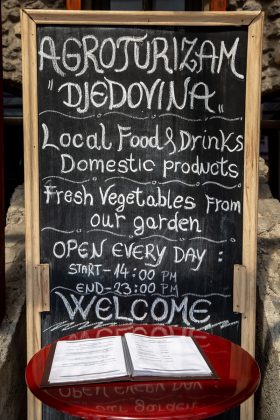 AGROTURIZAM
"DJEDOVINA"
Local Food & Drinks
Domestic products
Fresh Vegetables From
our garden
OPEN EVERY DAY :
START-14:00 PM
END-23:00 PM
WELCOME